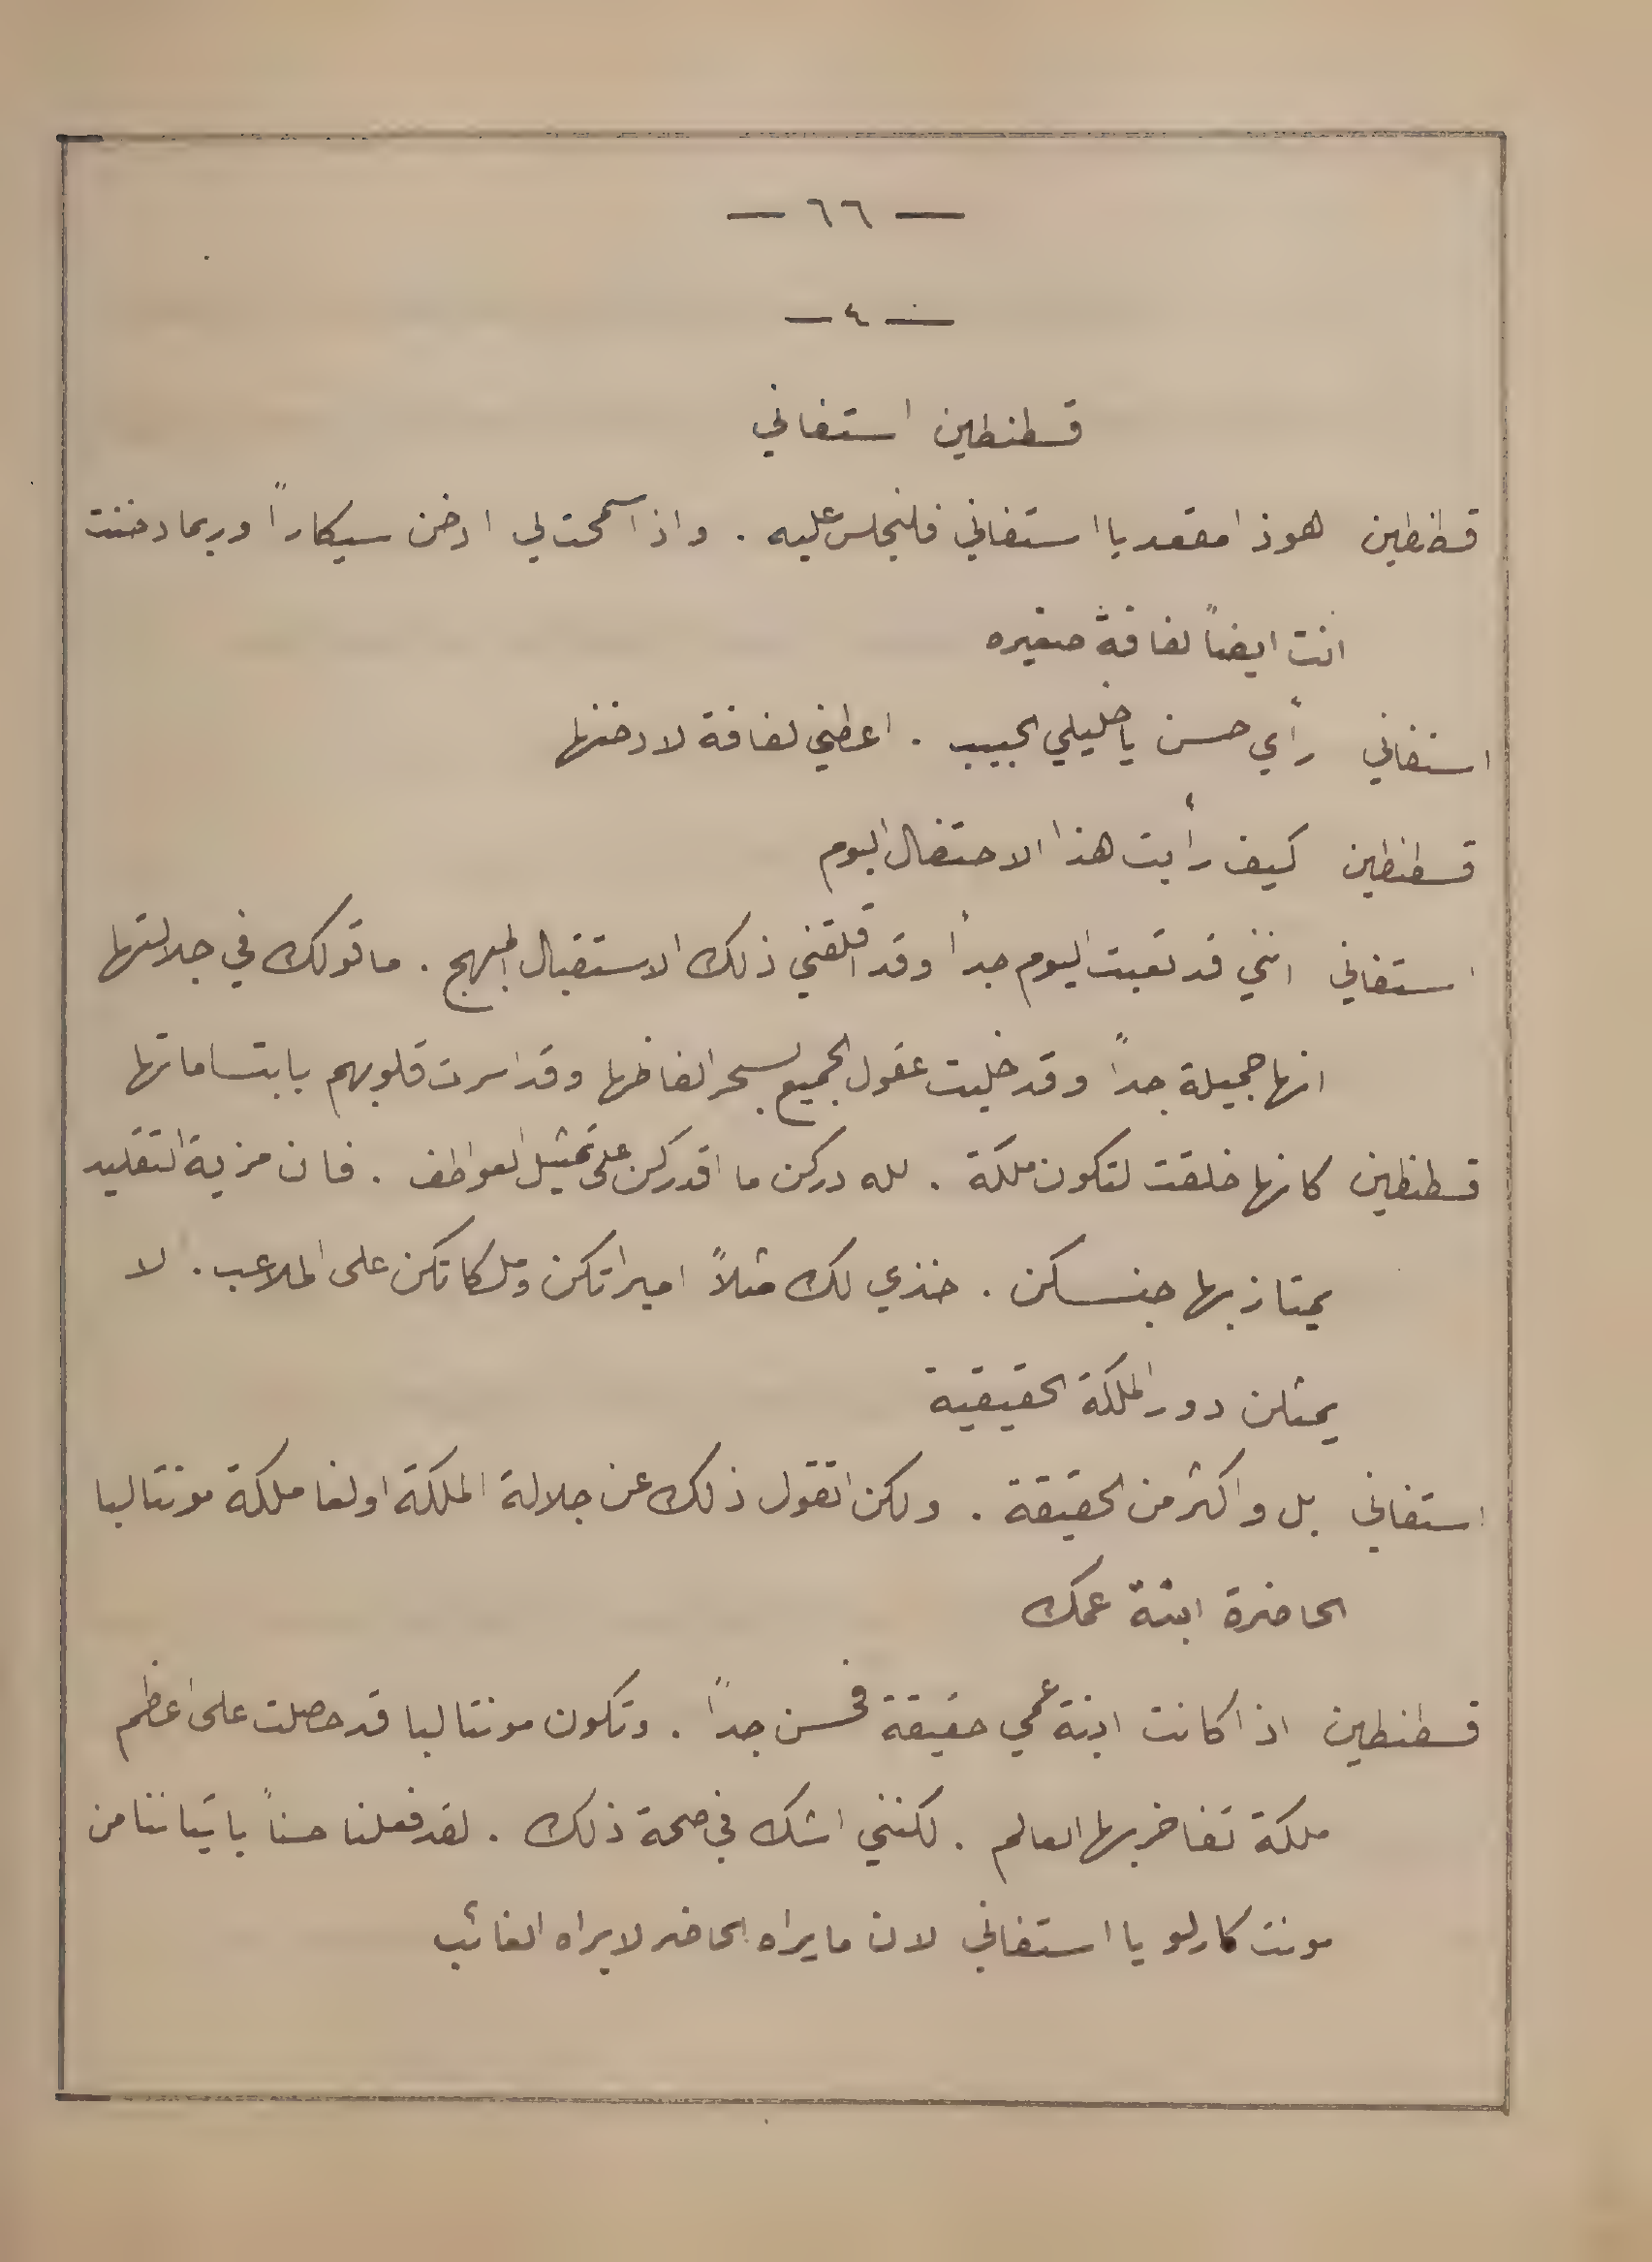 — ٦٦ —
— ٤ —
قسطنطين استفاني
قسطنطين هوذا مقعد يا استفاني فلنجلس عليه . واذا سمحت لي ادخن سيكاراً وربما دخنت
انت ايضاً لفافة صغيره
استفاني رأي حسن يا خليلي الحبيب . اعطني لفافة لادخنها
قسطنطين كيف رأيت هذا الاحتفال اليوم
استفاني انني قد تعبت اليوم جداً وقد اقلقني ذلك الاستقبال المبهج . ما قولك في جلالتها
انها جميلة جداً وقد خلبت عقول الجميع بسحر الفاظها وقد اسرت قلوبهم بابتساماتها
قسطنطين كانها خلقت لتكون ملكة . لله دركن ما اقدركن على تمثيل العواطف . فان مزية التقليد
يمتاز بها جنسكن . خذي لك مثلاً اميراتكن وملكاتكن على الملاعب . لا
يمثلن دور الملكة الحقيقية
استفاني بل واكثر من الحقيقة . ولكن اتقول ذلك عن جلالة الملكة اولغا ملكة مونتالبا
الحاضرة ابنة عمك
قسطنطين اذا كانت ابنة عمي حقيقة فحسن جداً . وتكون مونتالبا قد حصلت على اعظم
ملكة تفاخر بها العالم . لكنني اشك في صحة ذلك . لقد فعلنا حسناً باتياننا من
مونت كارلو يا استفاني لان ما يراه الحاضر لا يراه الغائب